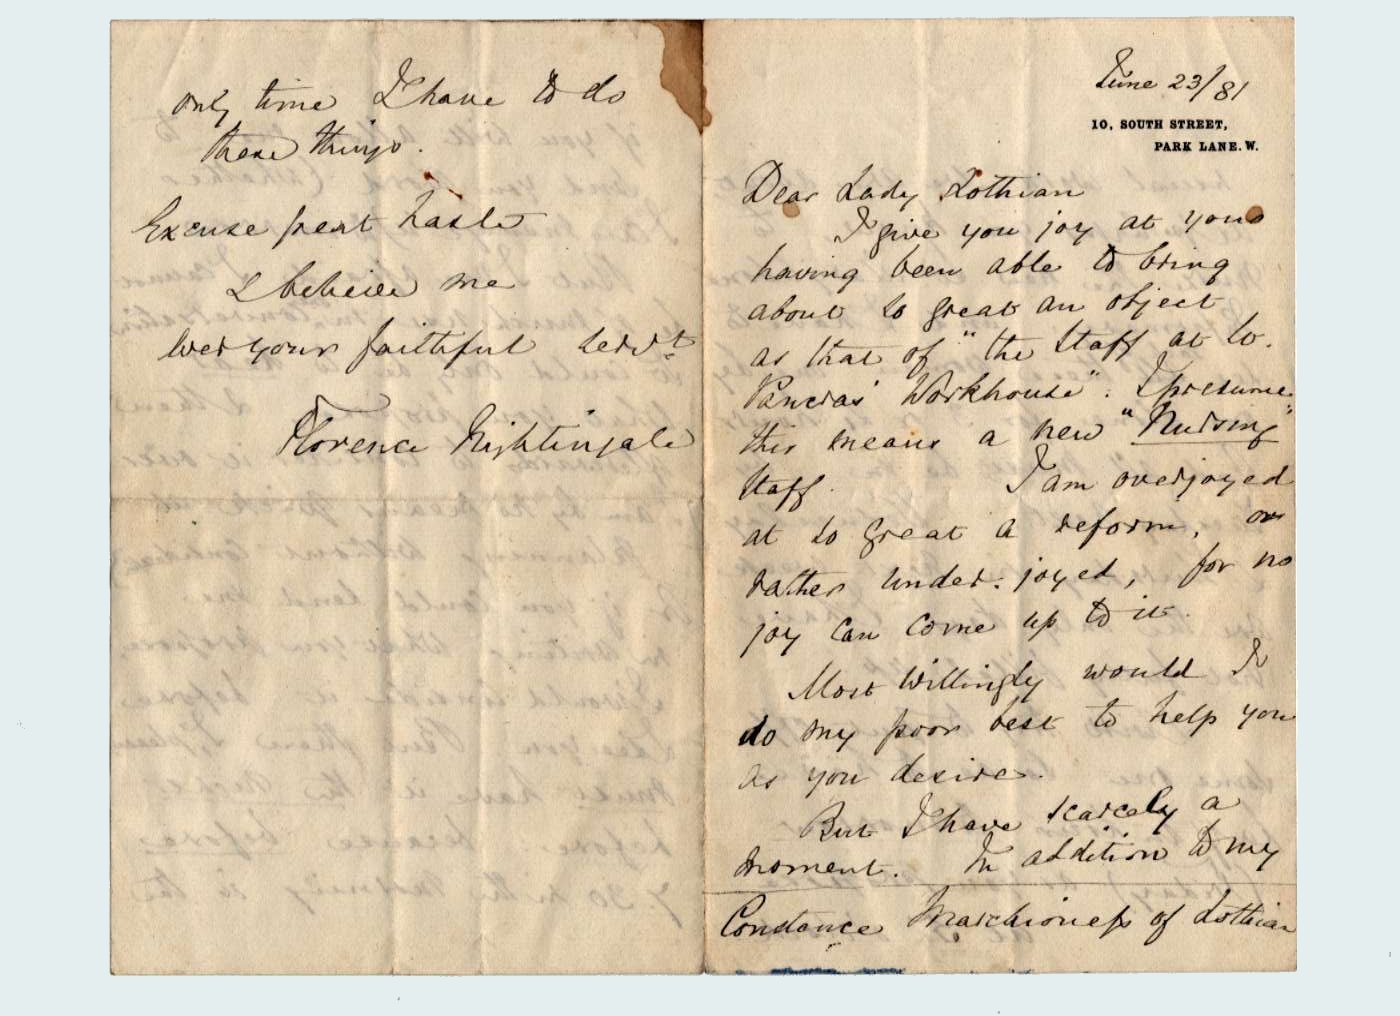 June 23/81
10, SOUTH STREET,
PARK LANE. W.
Dear Lady Lothian
I give you joy at your
having been able to bring
about so great an object
as that of "the Staff at St.
Pancras' Workhouse". I presume
this means a new "Nursing"
Staff. I am overjoyed
at so great a reform, or
rather under-joyed, for no
joy can come up to it.
Most willingly would I
do my poor best to help you
as you desire.
But I have scarcely a
moment. In addition to my
Constance Marchioness of Lothian
only time I have to do
these things.
Excuse great haste
& believe me
ever your faithful serv.t
Florence Nightingale